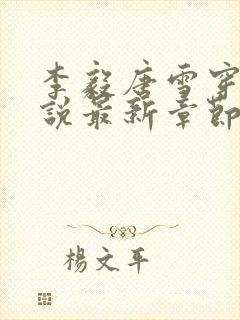 李毅唐雪穿
說最新章節
楊文平